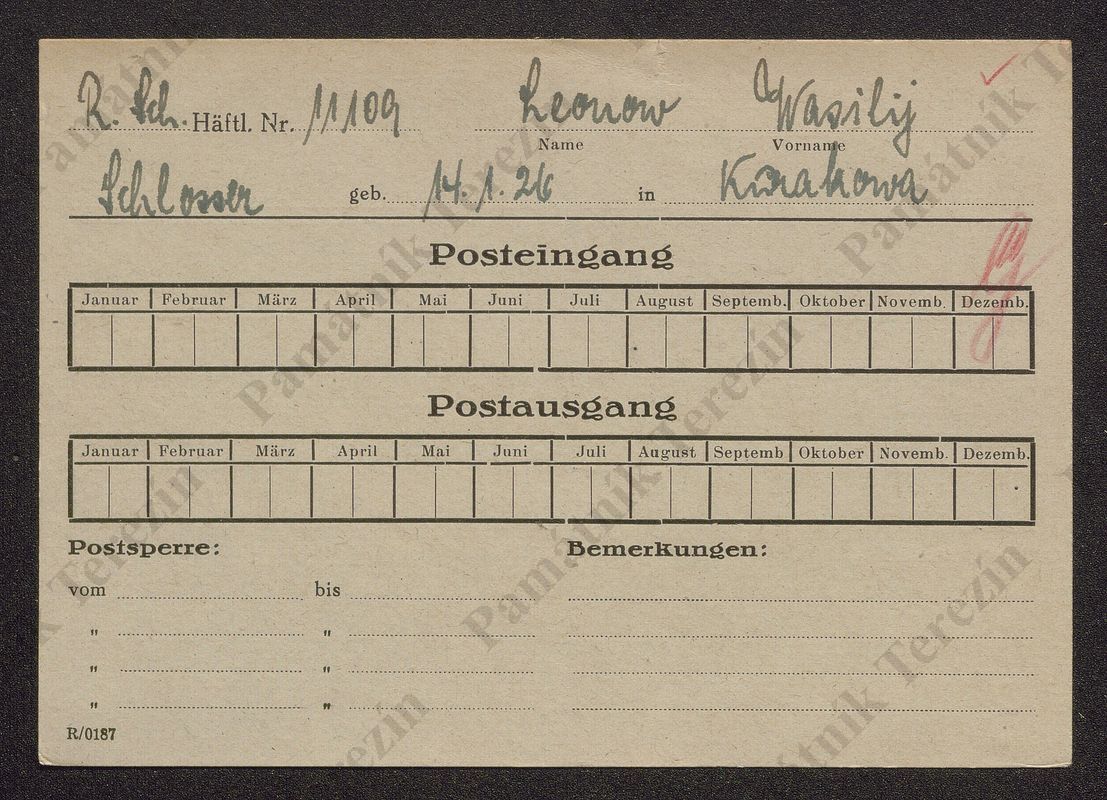 R. Sch. Häftl. Nr. 11109 Leonow Wasilij
Name Vorname
Schlosser geb. 14.1.26 in
Posteingang
Januar Februar März April Mai Juni Juli August Septemb. Oktober Novemb. Dezemb.
Postausgang
Januar Februar März April Mai Juni Juli August Septemb Oktober Novemb. Dezemb.
Postsperre: Bemerkungen:
vom bis
" "
" "
" "
R/0187
Památník Terezín